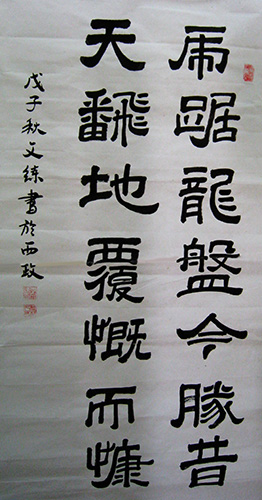 虎踞龍盤今勝昔
天翻地覆慨而慷
戊子秋文練書於西玫